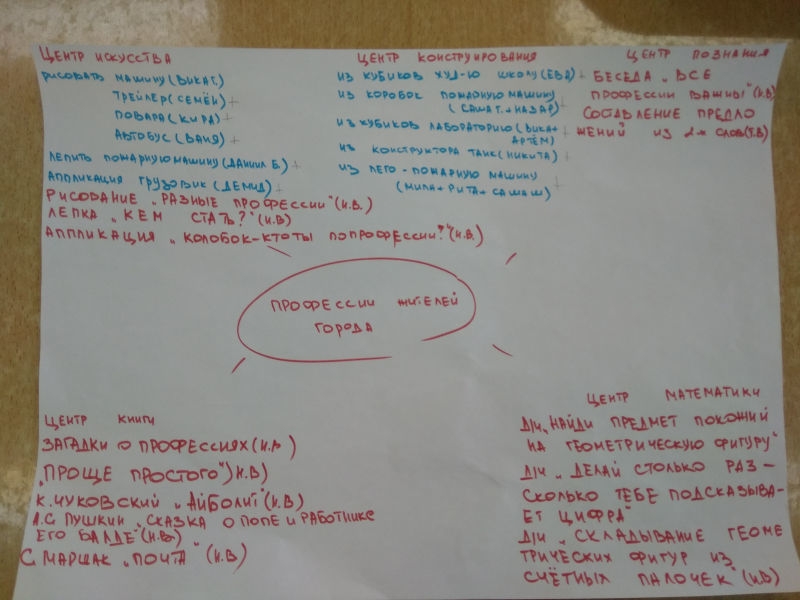 ЦЕНТР ИСКУССТВА
РИСОВАТЬ МАШИНУ(ВИКА Г.)
ТРЕЙЛЕР(СЕМЁН) +
ПОВАРА(КИРА) +
АВТОБУС(ВАНЯ) +
ЛЕПИТЬ ПОЖАРНУЮ МАШИНУ(ДАНИИЛ Б.) +
АППЛИКАЦИЯ ГРУЗОВИК(ДЕМИД) +
РИСОВАНИЕ „РАЗНЫЕ ПРОФЕССИИ"(И.В.)
ЛЕПКА „КЕМ СТАТЬ?"(И.В)
АППЛИКАЦИЯ „КОЛОБОК-КТО ТЫ ПО ПРОФЕССИИ?"(И.В.)
ЦЕНТР КОНСТРУИРОВАНИЯ
ИЗ КУБИКОВ ХУД-Ю ШКОЛУ(ЕВА) +
ИЗ КОРОБОК ПОЖАРНУЮ МАШИНУ
(САША Г.+НАЗАР) +
ИЗ КУБИКОВ ЛАБОРАТОРИЮ(ВИКА+
АРТЁМ) +
ИЗ КОНСТРУКТОРА ТАНК(НИКИТА) +
ИЗ ЛЕГО-ПОЖАРНУЮ МАШИНУ
(МИЛА+РИТА+САША Ш) +
ЦЕНТР ПОЗНАНИЯ
БЕСЕДА „ВСЕ
ПРОФЕССИИ ВАЖНЫ"(И.В)
СОСТАВЛЕНИЕ ПРЕДЛО
ЖЕНИЙ ИЗ 2-Х СЛОВ(Т.В)
ПРОФЕССИИ ЖИТЕЛЕЙ
ГОРОДА
ЦЕНТР КНИГИ
ЗАГАДКИ О ПРОФЕССИЯХ(И.В)
„ПРОЩЕ ПРОСТОГО")И.В)
К.ЧУКОВСКИЙ „АЙБОЛИТ"(И.В)
А.С ПУШКИН „СКАЗКА О ПОПЕ И РАБОТНИКЕ
ЕГО БАЛДЕ"(И.В.)
С МАРШАК „ПОЧТА"(И.В)
ЦЕНТР МАТЕМАТИКИ
Д/И „НАЙДИ ПРЕДМЕТ ПОХОЖИЙ
НА ГЕОМЕТРИЧЕСКУЮ ФИГУРУ"
Д/И „ДЕЛАЙ СТОЛЬКО РАЗ-
СКОЛЬКО ТЕБЕ ПОДСКАЗЫВА-
ЕТ ЦИФРА"
Д/И „СКЛАДЫВАНИЕ ГЕОМЕ
ТРИЧЕСКИХ ФИГУР ИЗ
СЧЁТНЫХ ПАЛОЧЕК"(И.В)